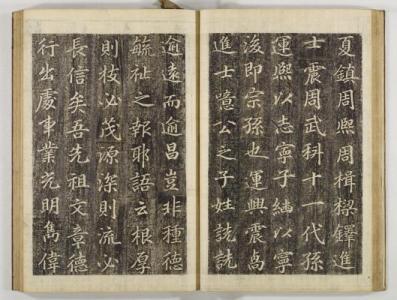 夏鎮周熙周楫櫟鐸進
士震周武科十一代孫
運熙以志寧子繡以寧
浚即宗孫也運興震為
進士噫公之子姓詵詵
逾遠而逾昌豈非種德
毓祉之報耶語云根厚
則枝必茂源深則流必
長信矣吾先祖文章德
行出處事業光明雋偉